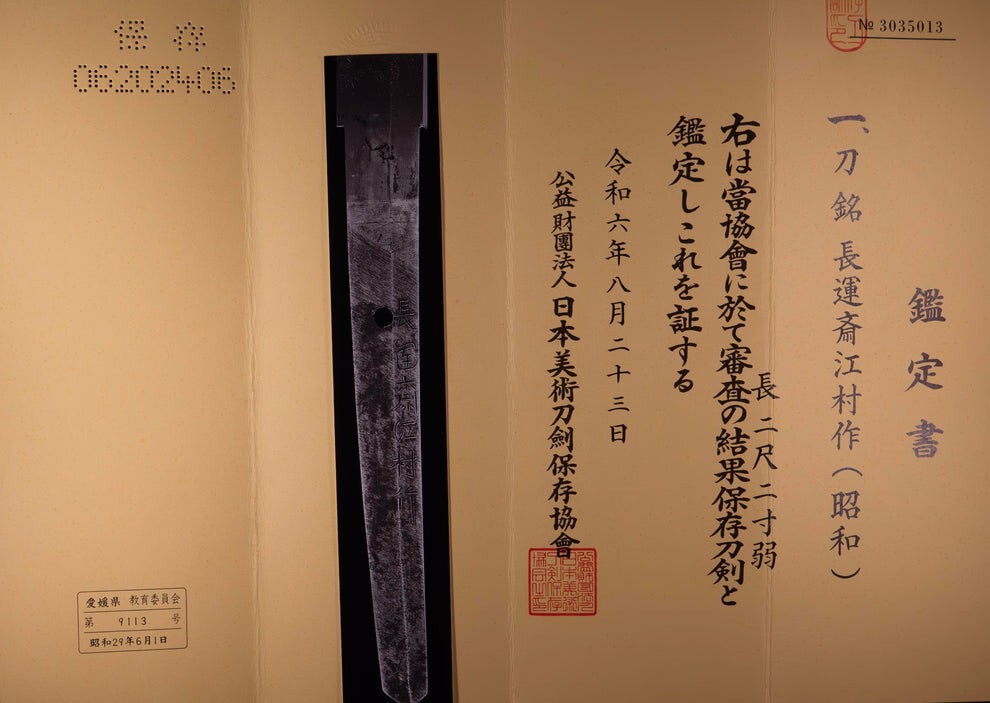 № 3035013
鑑定書
一、刀 銘 長運斎江村作（昭和）
長 二尺二寸弱
右は當協會に於て審査の結果保存刀剣と
鑑定しこれを証する
令和六年八月二十三日
公益財團法人 日本美術刀劍保存協會
長運斎江村作
保存
06202406
愛媛県 教育委員会
第 9113 号
昭和29年6月1日